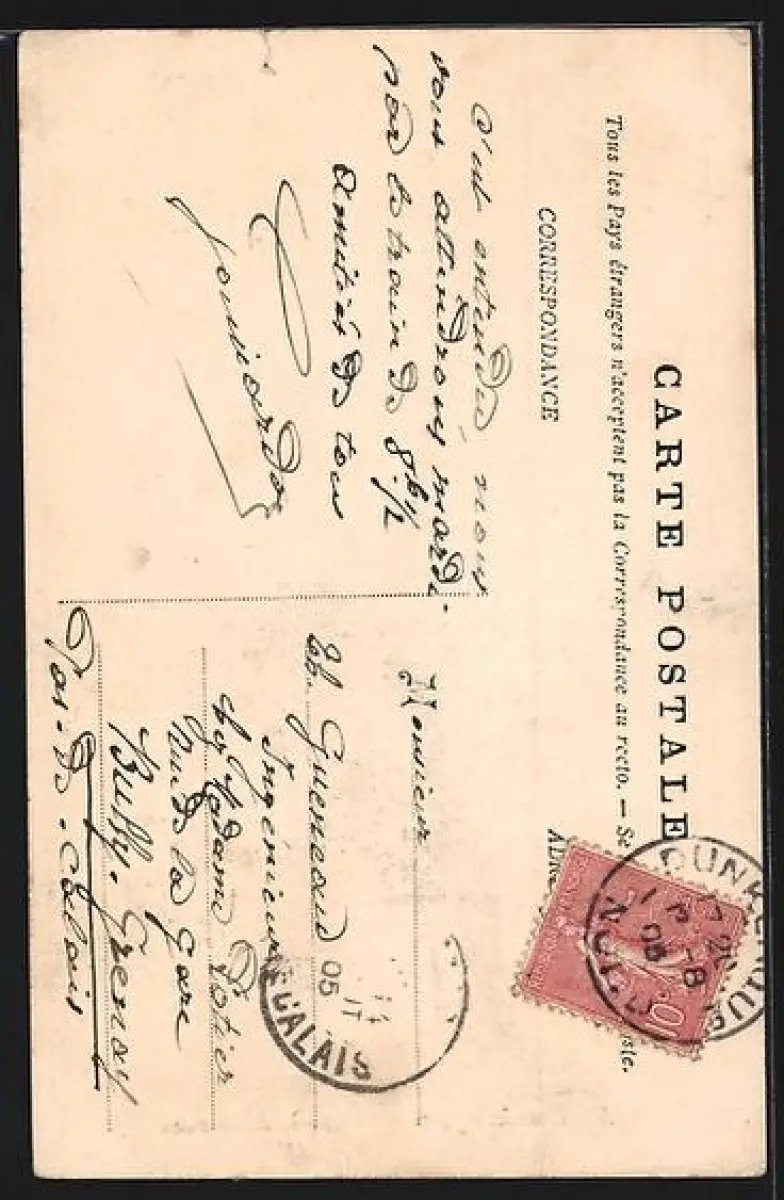 CARTE POSTALE
Tous les Pays étrangers n'acceptent pas la Correspondance au recto. — Se
CORRESPONDANCE
C'est entendu, nous
vous attendrons mardi
par le train de 8h 1/2
amitiés de tous
Monsieur
Ingénieur
chez Madame Potier
rue de la Gare
Bully-Grenay
Pas-de-Calais
DUNKERQUE
NORD
10
CALAIS
05